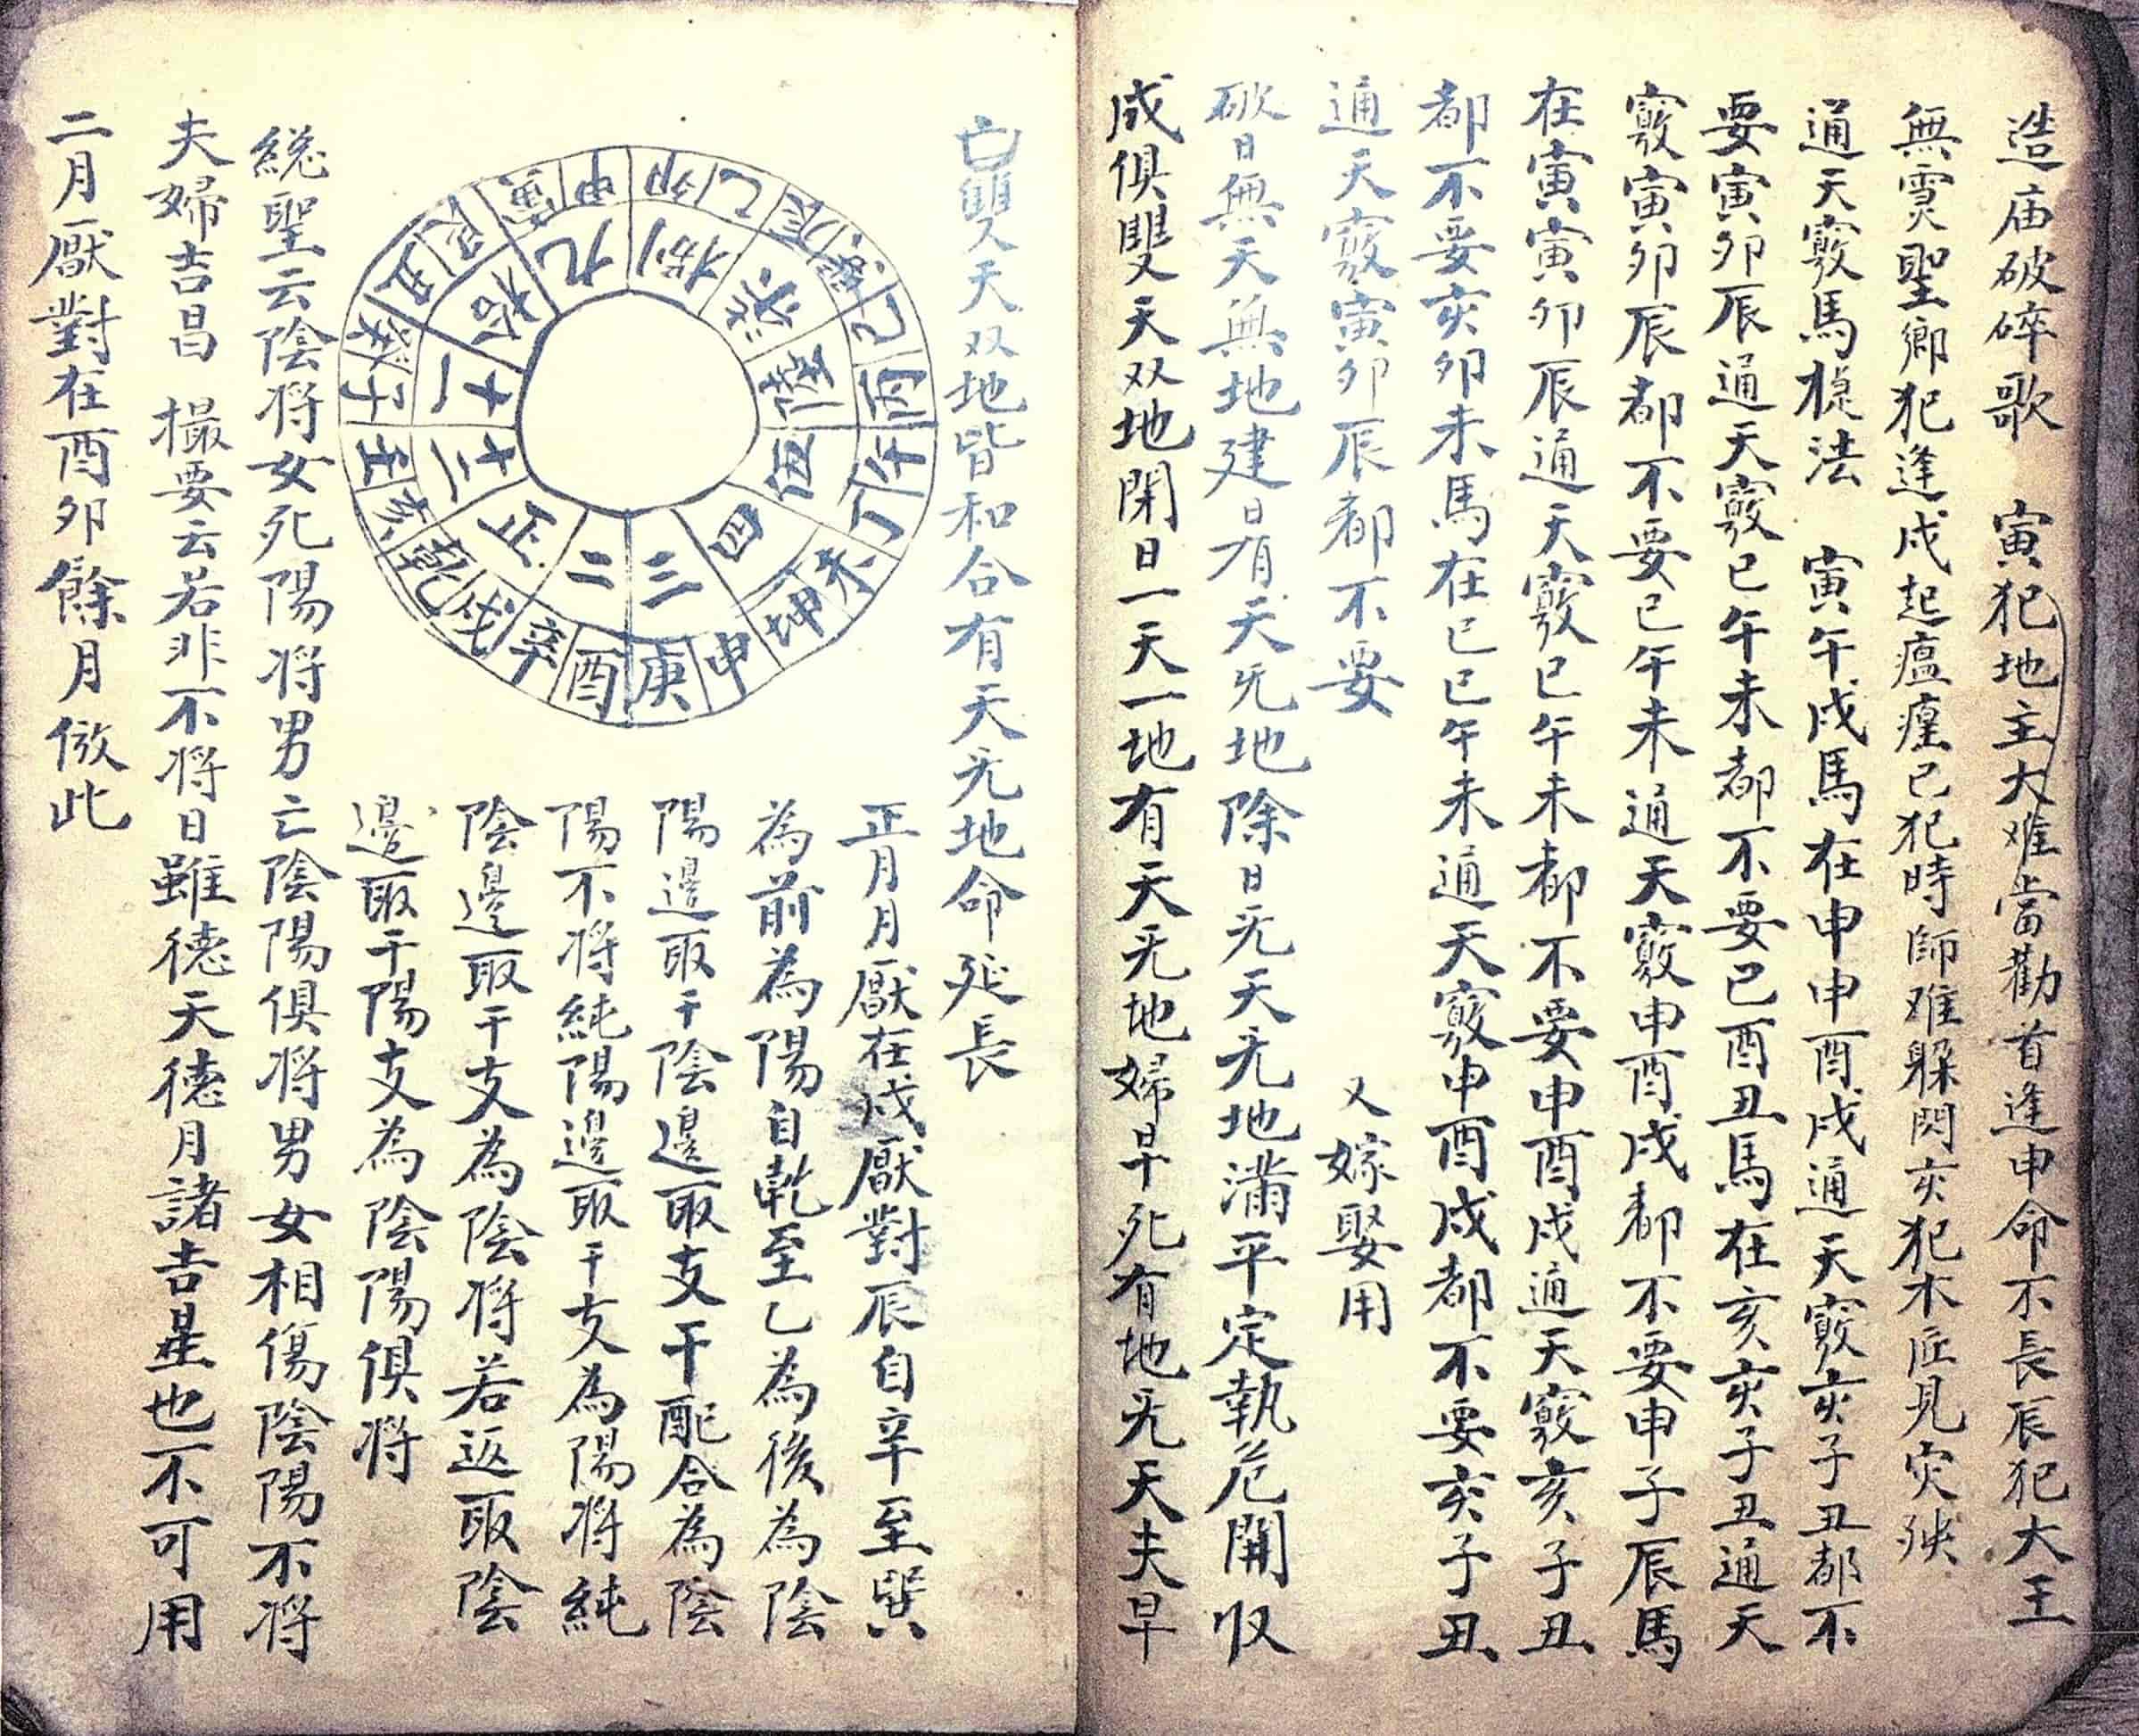 造庙破碎歌　寅犯地主大难當勸首逢申命不長辰犯大王
無灵聖鄉犯逢戌起瘟瘽已犯時師难躲閃亥犯木匠見灾殃
通天竅馬㮣法　寅午戌馬在申申酉戌通天竅亥子丑都不
要寅卯辰通天竅巳午未都不要巳酉丑馬在亥亥子丑通天
竅寅卯辰都不要巳午未通天竅申酉戌都不要申子辰馬
在寅寅卯辰通天竅巳午未都不要申酉戌通天竅亥子丑
都不要亥卯未馬在巳巳午未通天竅申酉戌都不要亥子丑
通天竅寅卯辰都不要　又嫁娶用
破日無天無地建日有天旡地除日旡天旡地滿平定執危開収
成俱雙天双地閉日一天一地有天旡地婦早死有地旡天夫早
亡雙天双地皆和合有天旡地命延長
正月月厭在戌厭對辰自辛至巽
為前為陽自乾至乙為後為陰
陽邊取干陰邊取支干配合為陰
陽不将純陽邊取干支為陽将純
陰邊取干支為陰将若返取陰
邊取干陽支為陰陽俱将
総聖云陰将女死陽将男亡陰陽俱将男女相傷陰陽不将
夫婦吉昌　撮要云若非不将日雖德天德月諸吉星也不可用
二月厭對在酉卯餘月倣此
甲卯乙辰巽巳丙午丁未坤申庚酉辛戌乾亥壬子癸丑艮寅
九捌柒陸伍四三二正十二十一拾